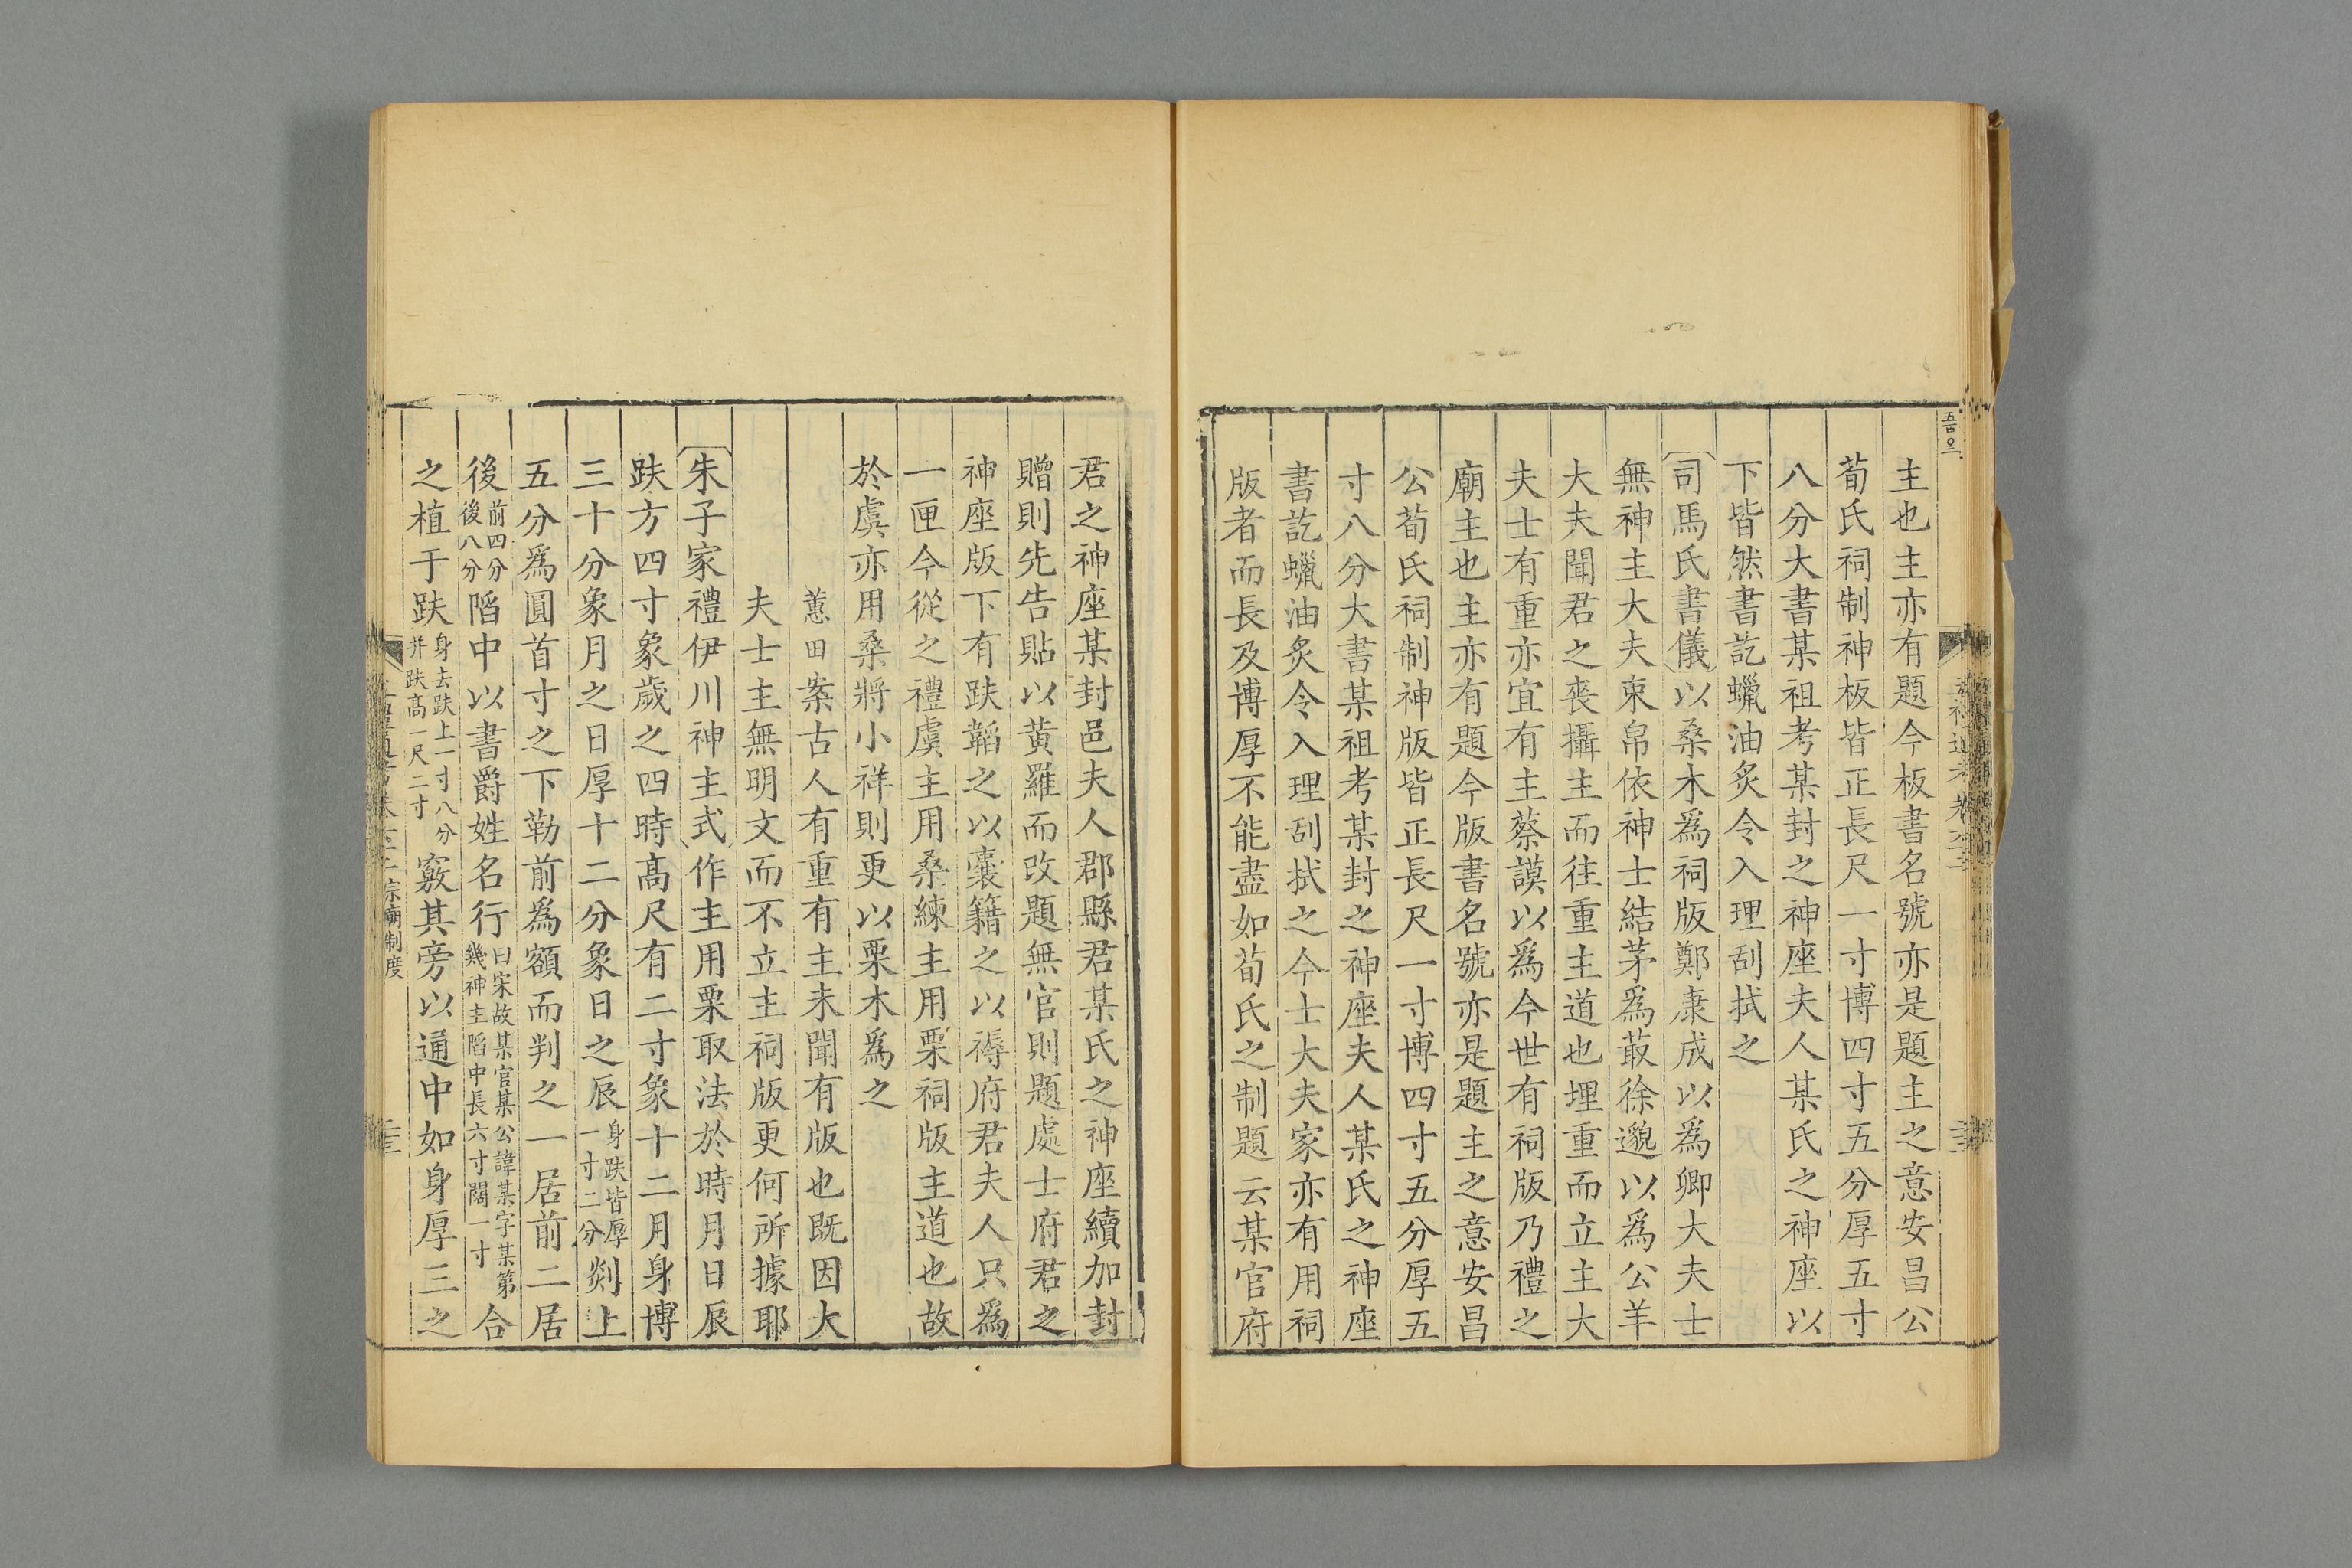 主也主亦有題今板書名號亦是題主之意安昌公
荀氏祠制神板皆正長尺一寸博四寸五分厚五寸
八分大書某祖考某封之神座夫人某氏之神座以
下皆然書訖蠟油炙令入理刮拭之
司馬氏書儀以桑木爲祠版鄭康成以爲卿大夫士
無神主大夫束帛依神士結茅爲菆徐邈以爲公羊
大夫聞君之喪攝主而往重主道也埋重而立主大
夫士有重亦宜有主蔡謨以爲今世有祠版乃禮之
廟主也主亦有題今版書名號亦是題主之意安昌
公荀氏祠制神版皆正長尺一寸博四寸五分厚五
寸八分大書某祖考某封之神座夫人某氏之神座
書訖蠟油炙令入理刮拭之今士大夫家亦有用祠
版者而長及博厚不能盡如荀氏之制題云某官府
君之神座某封邑夫人郡縣君某氏之神座續加封
贈則先告貼以黄羅而改題無官則題處士府君之
神座版下有趺韜之以囊籍之以褥府君夫人只爲
一匣今從之禮虞主用桑練主用栗祠版主道也故
於虞亦用桑將小祥則更以栗木爲之
蕙田案古人有重有主未聞有版也既因大
夫士主無明文而不立主祠版更何所據耶
朱子家禮伊川神主式作主用栗取法於時月日辰
趺方四寸象歲之四時高尺有二寸象十二月身博
三十分象月之日厚十二分象日之辰身趺皆厚一寸二分剡上
五分爲圓首寸之下勒前爲額而判之一居前二居
後前四分後八分䧟中以書爵姓名行曰宋故某官某公諱某字某第幾神主䧟中長六寸闊一寸合
之植于趺身去趺上一寸八分并趺高一尺二寸竅其旁以通中如身厚三之
宗廟制度